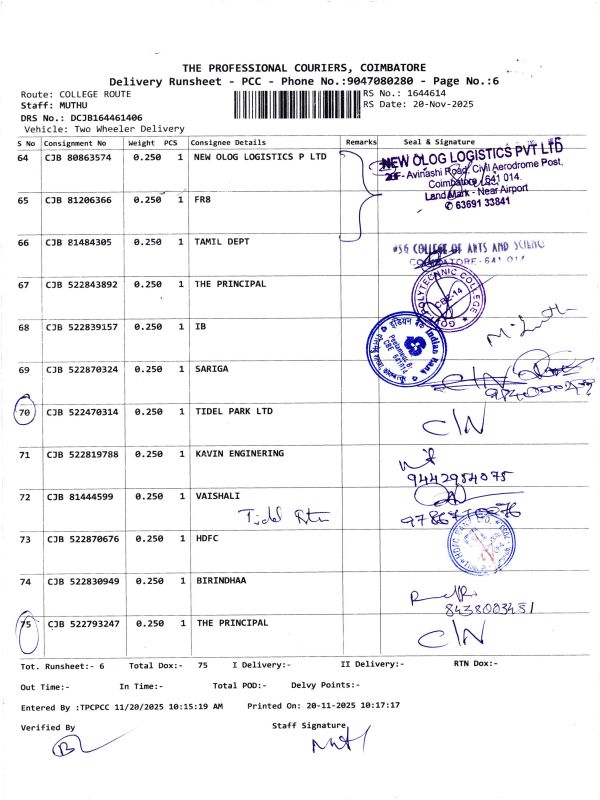 THE PROFESSIONAL COURIERS, COIMBATORE
Delivery Runsheet - PCC - Phone No.:9047080280 - Page No.:6
Route: COLLEGE ROUTE RS No.: 1644614
Staff: MUTHU RS Date: 20-Nov-2025
DRS No.: DCJB164461406
Vehicle: Two Wheeler Delivery
S No Consignment No Weight PCS Consignee Details Remarks Seal & Signature
64 CJB 80863574 0.250 1 NEW OLOG LOGISTICS P LTD
NEW OLOG LOGISTICS PVT LTD
Avinashi Road, Civil Aerodrome Post,
Coimbatore - 641 014.
Land Mark - Near Airport
✆ 63691 33841
65 CJB 81206366 0.250 1 FR8
66 CJB 81484305 0.250 1 TAMIL DEPT
PSG COLLEGE OF ARTS AND SCIENC
COIMBATORE - 641 014
67 CJB 522843892 0.250 1 THE PRINCIPAL
POLYTECHNIC COLLEGE
CBE-14
68 CJB 522839157 0.250 1 IB
इंडियन बैंक Indian Bank
Peelamedu
CBE 641014
69 CJB 522870324 0.250 1 SARIGA
C/N
70 CJB 522470314 0.250 1 TIDEL PARK LTD
C/N
71 CJB 522819788 0.250 1 KAVIN ENGINERING
9442954075
72 CJB 81444599 0.250 1 VAISHALI
Tidel
73 CJB 522870676 0.250 1 HDFC
HDFC BANK LTD.
74 CJB 522830949 0.250 1 BIRINDHAA
8438003451
75 CJB 522793247 0.250 1 THE PRINCIPAL
C/N
Tot. Runsheet:- 6 Total Dox:- 75 I Delivery:- II Delivery:- RTN Dox:-
Out Time:- In Time:- Total POD:- Delvy Points:-
Entered By :TPCPCC 11/20/2025 10:15:19 AM Printed On: 20-11-2025 10:17:17
Verified By Staff Signature